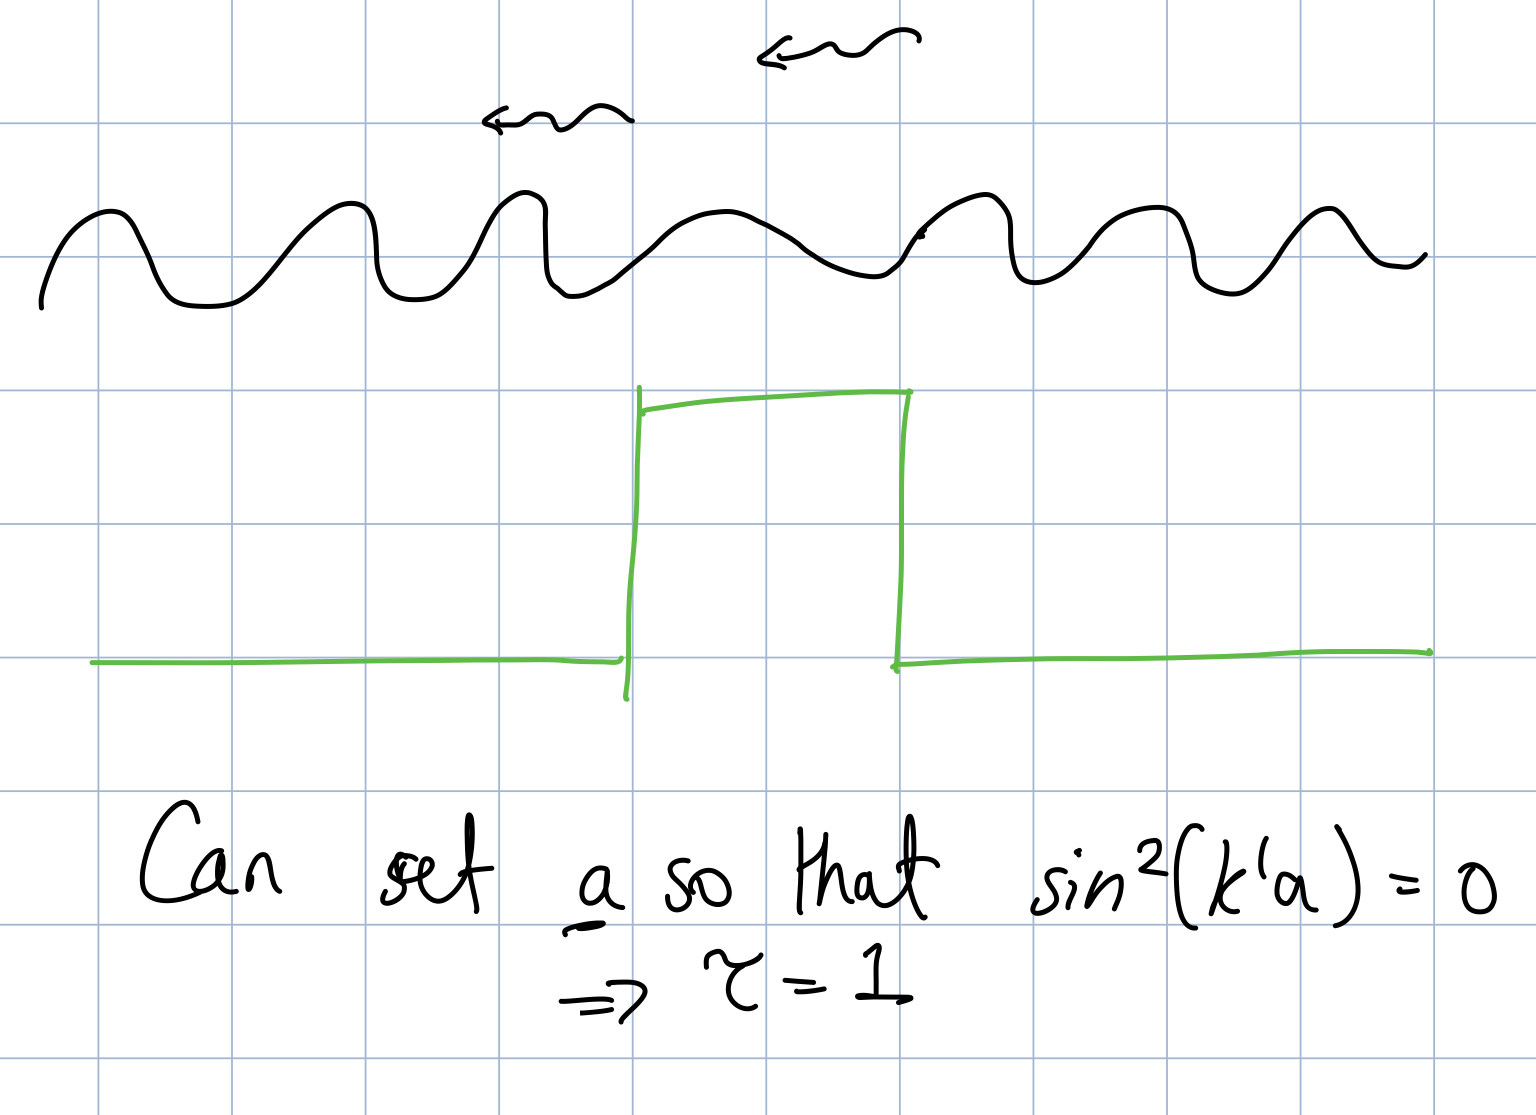 Can set a so that sin²(k'a) = 0
⇒ τ = 1